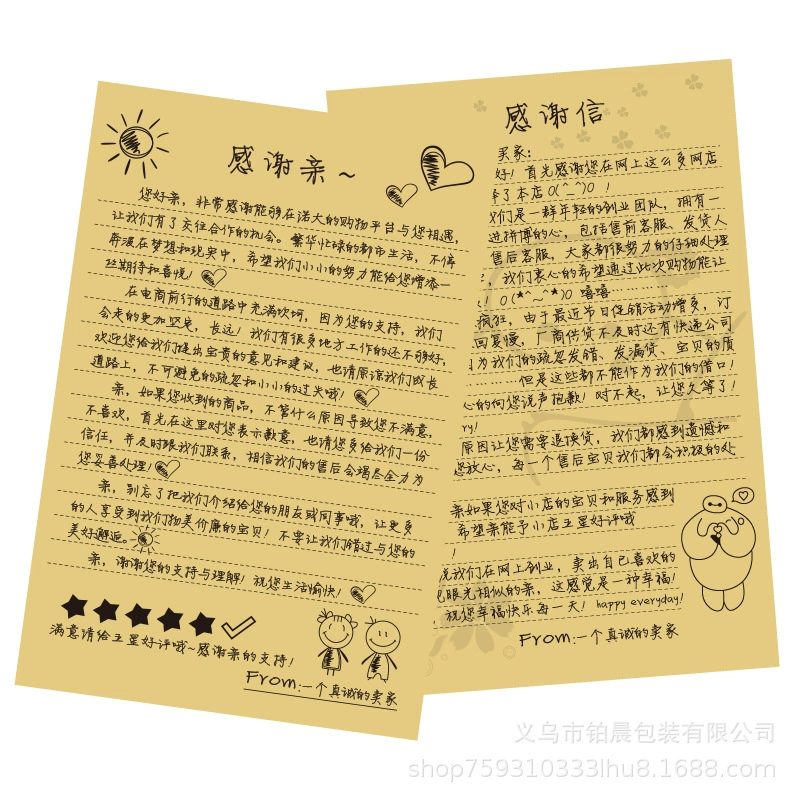 感谢亲~
您好亲，非常感谢能够在诺大的购物平台与您相遇，
让我们有了交往合作的机会。繁华忙碌的都市生活，不停
奔波在梦想和现实中，希望我们小小的努力能给您增添一
丝期待和喜悦！
在电商前行的道路中充满坎坷，因为您的支持，我们
会走的更加坚定，长远！我们有很多地方工作的还不够好，
欢迎您给我们提出宝贵的意见和建议，也请原谅我们成长
道路上，不可避免的疏忽和小小的过失哦！
亲，如果您收到的商品，不管什么原因导致您不满意，
不喜欢，首先在这里对您表示歉意，也请您多给我们一份
信任，并及时跟我们联系，相信我们的售后会竭尽全力为
您妥善处理！
亲，别忘了把我们介绍给您的朋友或同事哦，让更多
的人享受到我们物美价廉的宝贝！不要让我们错过与您的
美好邂逅。
亲，谢谢您的支持与理解！祝您生活愉快！
满意请给五星好评哦~感谢亲的支持！
From:一个真诚的卖家
感谢信
买家：
好！首先感谢您在网上这么多网店
了本店 O(^_^)O ！
们是一群年轻的创业团队，拥有一
进拼博的心，包括售前客服、发货人
售后客服，大家都很努力的仔细处理
我们衷心的希望通过此次购物能让
！O(*^～^*)O 嘻嘻
疯狂，由于最近节日促销活动增多，订
回复慢，厂商供货不及时还有快递公司
为我们的疏忽发错、发漏货、宝贝的质
……但是这些都不能作为我们的借口！
心的向您说声抱歉！对不起，让您久等了！
ry!
原因让您需要退换货，我们都感到遗憾和
您放心，每一个售后宝贝我们都会积极的处
亲如果您对小店的宝贝和服务感到
希望亲能予小店五星好评哦
！
我们在网上创业，卖出自己喜欢的
眼光相似的亲，这感觉是一种幸福！
祝您幸福快乐每一天！happy everyday!
From:一个真诚的卖家
义乌市铂晨包装有限公司
shop759310333lhu8.1688.com